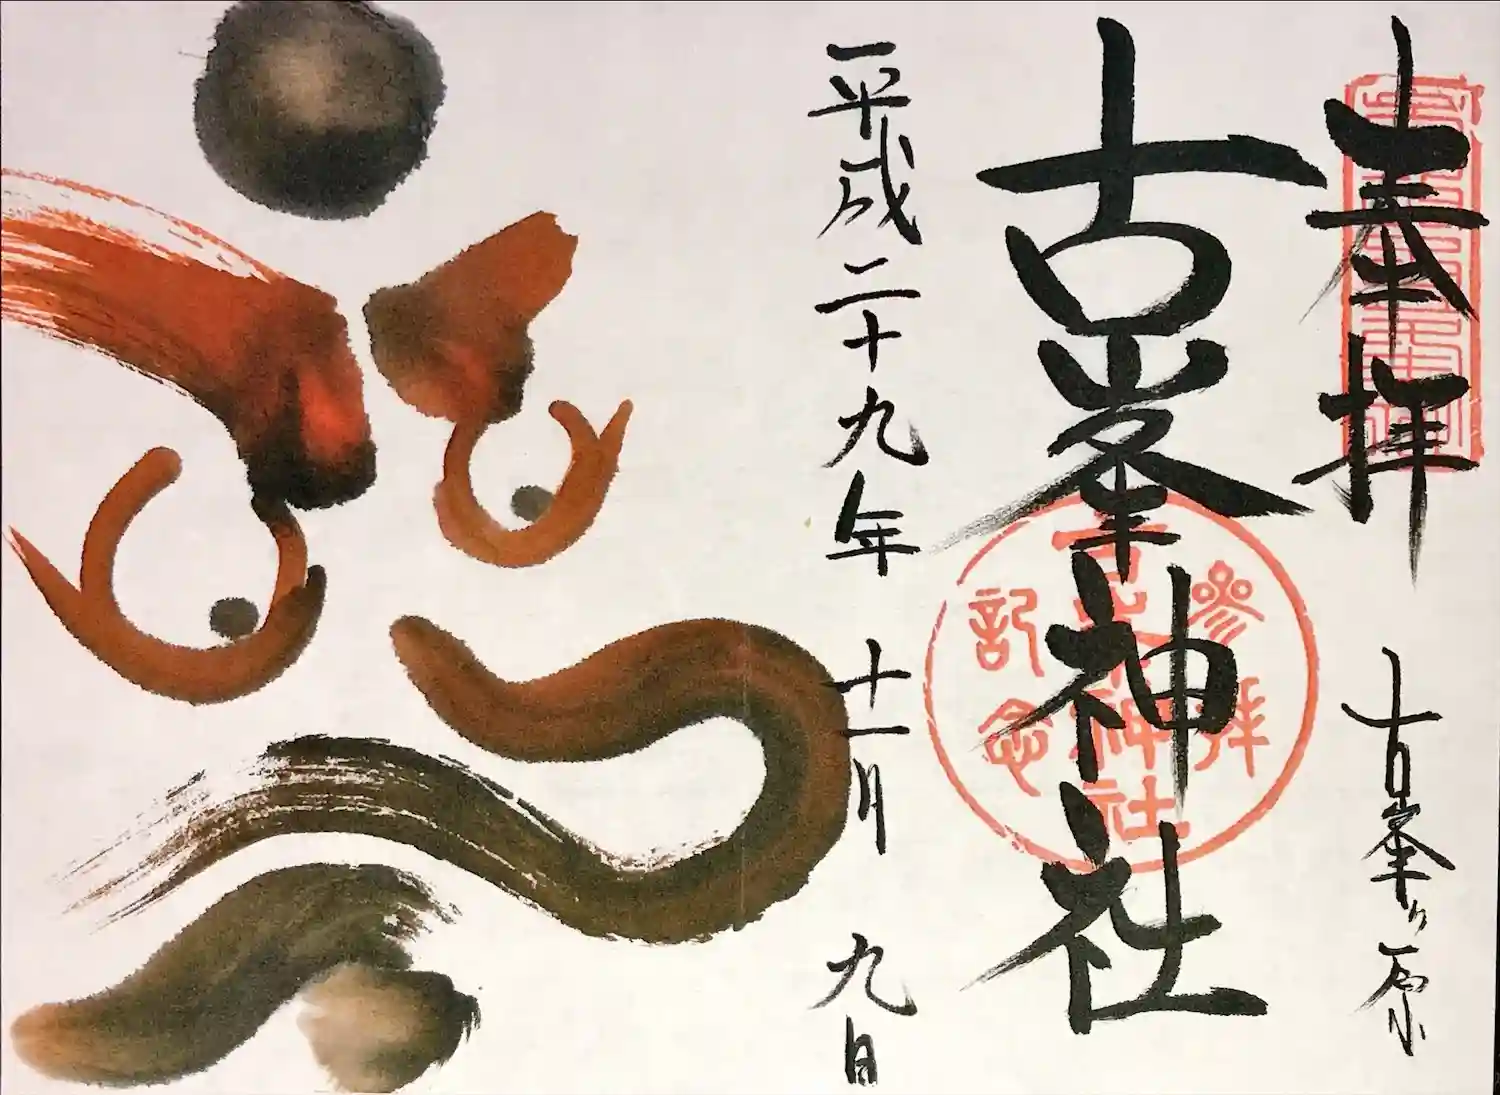 奉拝
古峯ヶ原
古峯神社
参拝
古峯神社
記念
平成二十九年 十一月 九日